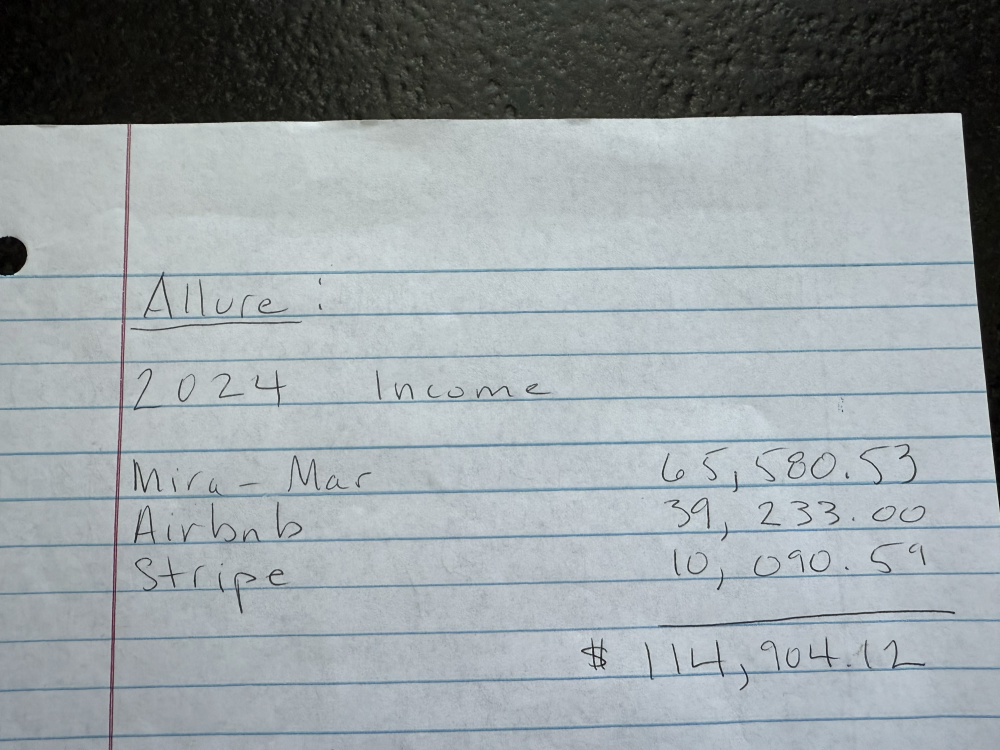 Allure :
2024 Income
Mira - Mar 65,580.53
Airbnb 39,233.00
Stripe 10,090.59
$ 114,904.12